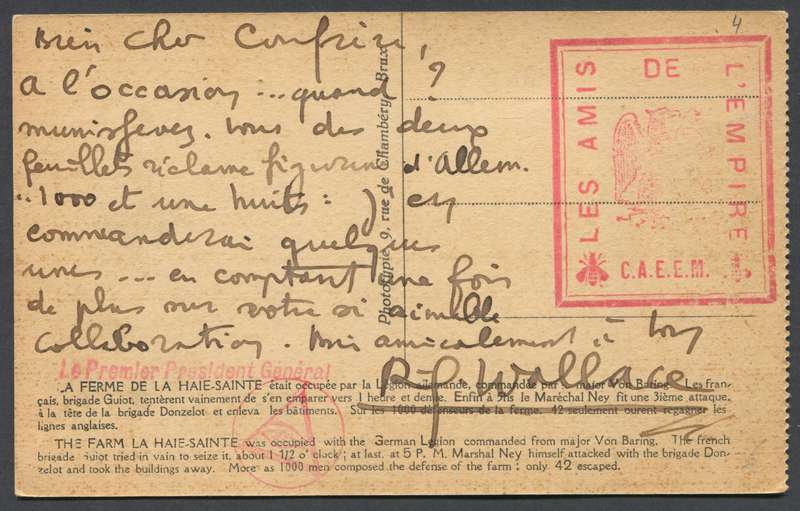 4
Bien cher Confrère,
A l'occasion ... quand ?
vous des deux
feuillets réclame figurine d'Allem.
..1000 et une huits : ) en
commanderai quelques
unes ... en comptant une fois
de plus sur votre si aimable
collaboration. amicalement à
R-f Wallace
Phototypie 9, rue de Chambéry, Brux.
LES AMIS DE L'EMPIRE
C.A.E.E.M.
Le Premier Président Général
LA FERME DE LA HAIE-SAINTE était occupée par la Légion allemande, commandée par le major Von Baring. Les fran-
çais, brigade Guiot, tentèrent vainement de s'en emparer vers 1 heure et demie. Enfin à 5hs le Maréchal Ney fit une 3ième attaque,
à la tête de la brigade Donzelot et enleva les bâtiments. Sur les 1000 défenseurs de la ferme, 42 seulement purent regagner les
lignes anglaises.
THE FARM LA HAIE-SAINTE was occupied with the German Legion commanded from major Von Baring. The french
brigade Guiot tried in vain to seize it, about 1 1/2 o' clock ; at last, at 5 P. M. Marshal Ney himself attacked with the brigade Don-
zelot and took the buildings away. More as 1000 men composed the defense of the farm ; only 42 escaped.